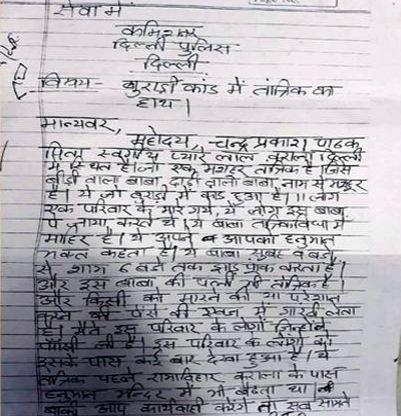 सेवा में
कमिश्नर
दिल्ली पुलिस
दिल्ली
विषय- बुराड़ी कांड में तांत्रिक का
हाथ।
मान्यवर,
महोदय, चन्द्र प्रकाश पाठक
पिता स्वर्गीय प्यारे लाल कराला दिल्ली
में स्थित है। जो एक मशहूर तांत्रिक है जिसे
बीड़ी वाला बाबा, दाढ़ी वाला बाबा, नाम से मशहूर
है। ये जो बुराड़ी में कांड हुआ है। 11 लोग
एक परिवार के मारे गये, ये लोग इस बाबा
पे जाया करते थे। ये बाबा तांत्रिकविद्या में
माहिर है। ये अपने आपको हनुमान
भक्त कहता है। ये बाबा सुबह बजे
से शाम 6 बजे तक झाड़ फूंक करता है।
और इस बाबा की पत्नी भी तांत्रिक है।
और किसी को मारने की या परेशान
करने की पैसे की में गारंटी लेता
है। मैंने इस परिवार के लोगों जिन्होंने
फांसी ली है। इस परिवार के लोगों को
इसके पास कई बार देखा हुआ है। ये
तांत्रिक पहले रामाविहार कराला के पास
हनुमान मन्दिर में भी बैठता था।
बाकी आप कार्यवाही करेंगे तो सब सामने